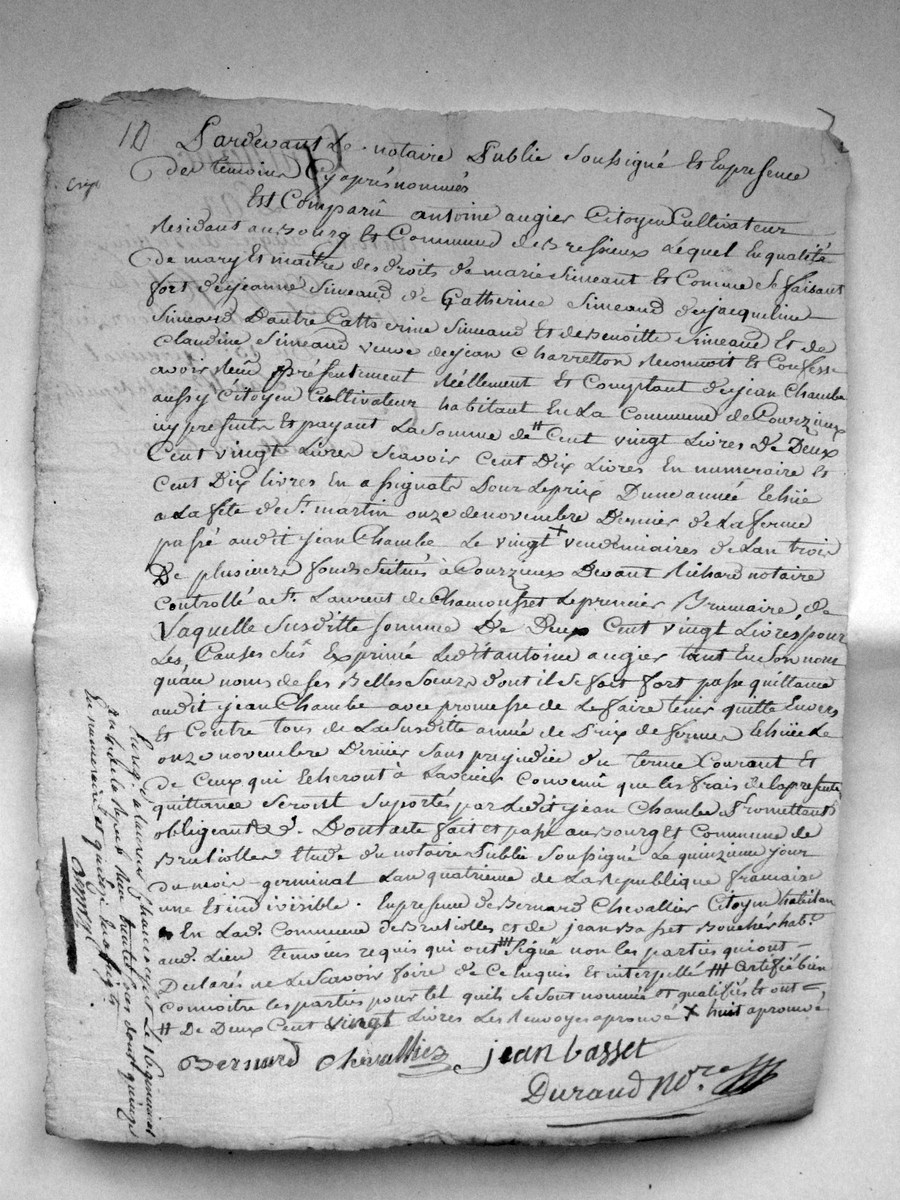 10 Pardevant Le notaire Public soussigné Et En presence
Des temoins Cy aprés nommés
Exp.
Est Comparû antoine augier Citoyen Cultivateur
Residant au Bourg Et Commune de Bressieux Lequel En qualité
De mary Et maitre des droits de marie Simeant Et Comme Se faisant
fort de jeanne Simeaud de Catherine Simeaud de jacqueline
Simeaud Dautre Catherine Simeaud Et de Benoitte Simeaud Et de
Claudine Simeaud veuve de jean Charretton Reconnoit Et Confesse
avoir Reçu présentement Réellement Et Comptant de jean Chambe
aussy Citoyen Cultivateur habitant En La Commune de Courzieux
icy present Et payant La Somme de # Cent vingt Livres De Deux
Cent vingt Livres Scavoir Cent Dix Livres En numeraire Et
Cent Dix livres En assignats Pour Le prix Dune année Echüe
a La fête de St. martin onze de novembre Dernier de La ferme
passé audit jean Chambe Le vingt + vendemiaires de Lan trois
De plusieurs fonds Scitués à Courzieux Devant Richard notaire
Controllé a St. Laurent de Chamousset Le premier Brumaire, de
Laquelle Susditte Somme De Deux Cent vingt Livres pour
Les Causes Sus Exprimé Ledit antoine augier tant En Son nom
quau noms de Ses Belles Soeurs dont il Se fait fort passe quittance
audit jean Chambe avec promesse de Le faire tenir quitte Envers
Et Contre tous de La Susditte année de Prix de ferme Echüe Le
onze novembre Dernier Sans prejudice du terme Courant Et
De Ceux qui Echeront à Lavenir Convenû que Les frais de La presente
quittance Seront Suportés par Ledit jean Chambe Promettant
obligeant &c. Dont acte fait et passé au Bourg Et Commune de
Brussiolles Etude du notaire Public Soussigné Le quinzieme jour
Du mois germinal Lan quatrieme de La Republique francaise
une Et indivisible. En presence de Bernard Chevallier Citoyen habitan
En Lad. Commune de Brussiolles et de jean Basset Boucher habt.
aud. Lieu temoins requis qui ont # Signé non les parties qui ont
Declarés ne Le Scavoir faire de Ce Enquis Et interpellé # Certifié bien
Connoitre Les parties pour tel quils Se Sont nommés et qualifiés et ont =
# De Deux Cent vingt Livres Les Renvoyes aprouvé + huit aprouvé
Bernard Chevallier jean basset
Durand Nre.
Enrg. à Laurent Chamousset Le 16 germinal
Reçu trente sous dont quinze
En numeraire et quinze En assignats